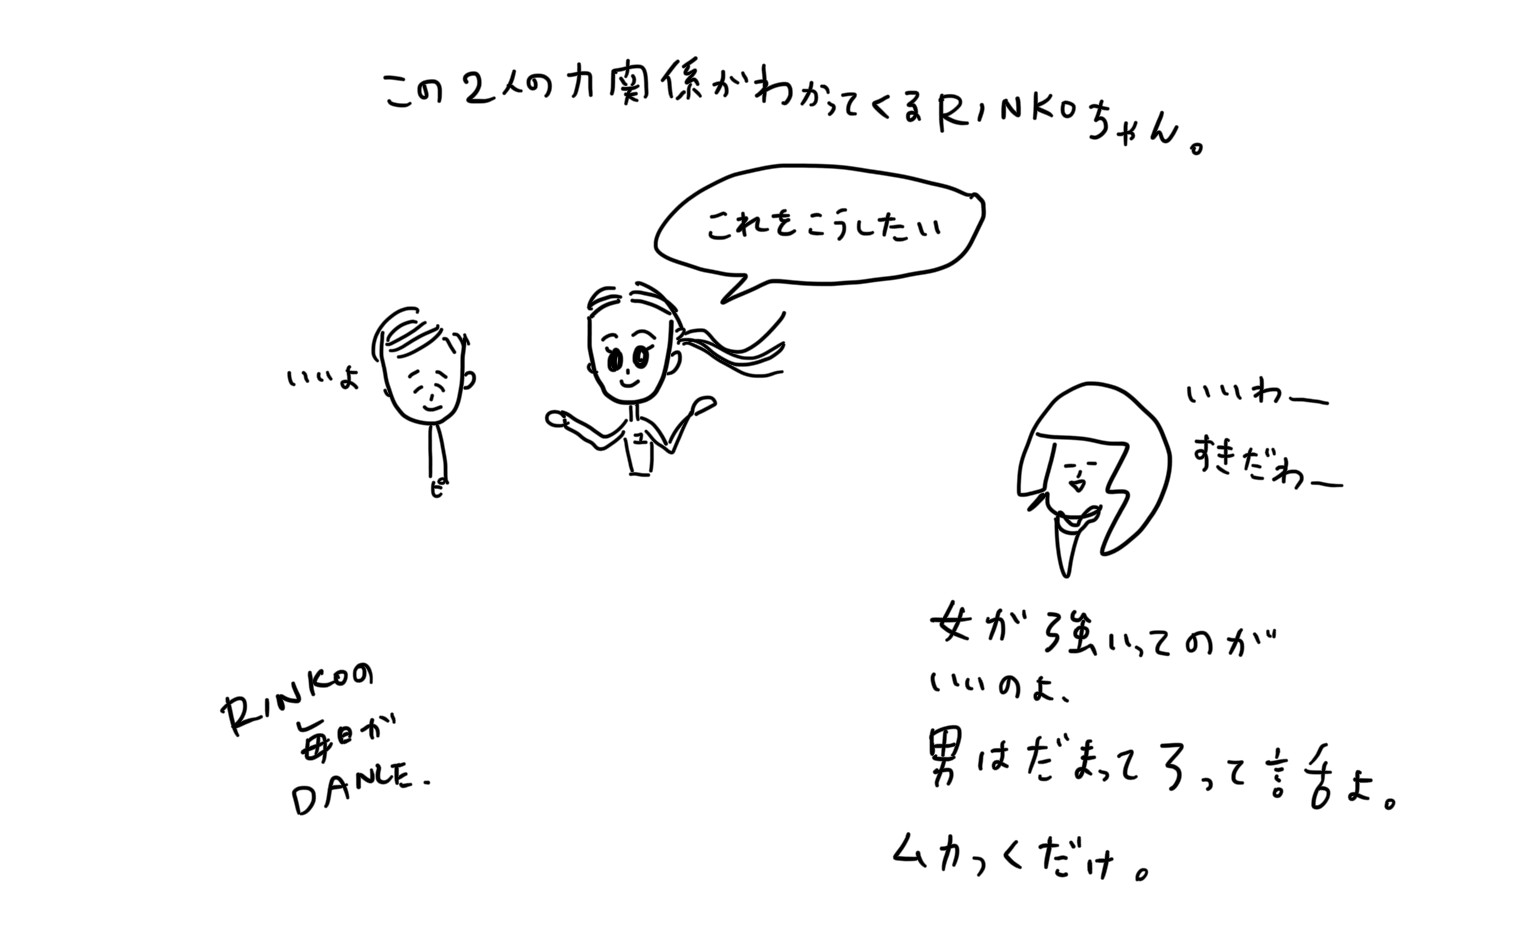 この2人の力関係がわかってくるRINKOちゃん。
これをこうしたい
いいよ
ユ
ピ
いいわー
すきだわー
女が強いってのが
いいのよ、
男はだまってろって話よ。
ムカっくだけ。
RINKOの
毎日が
DANCE.